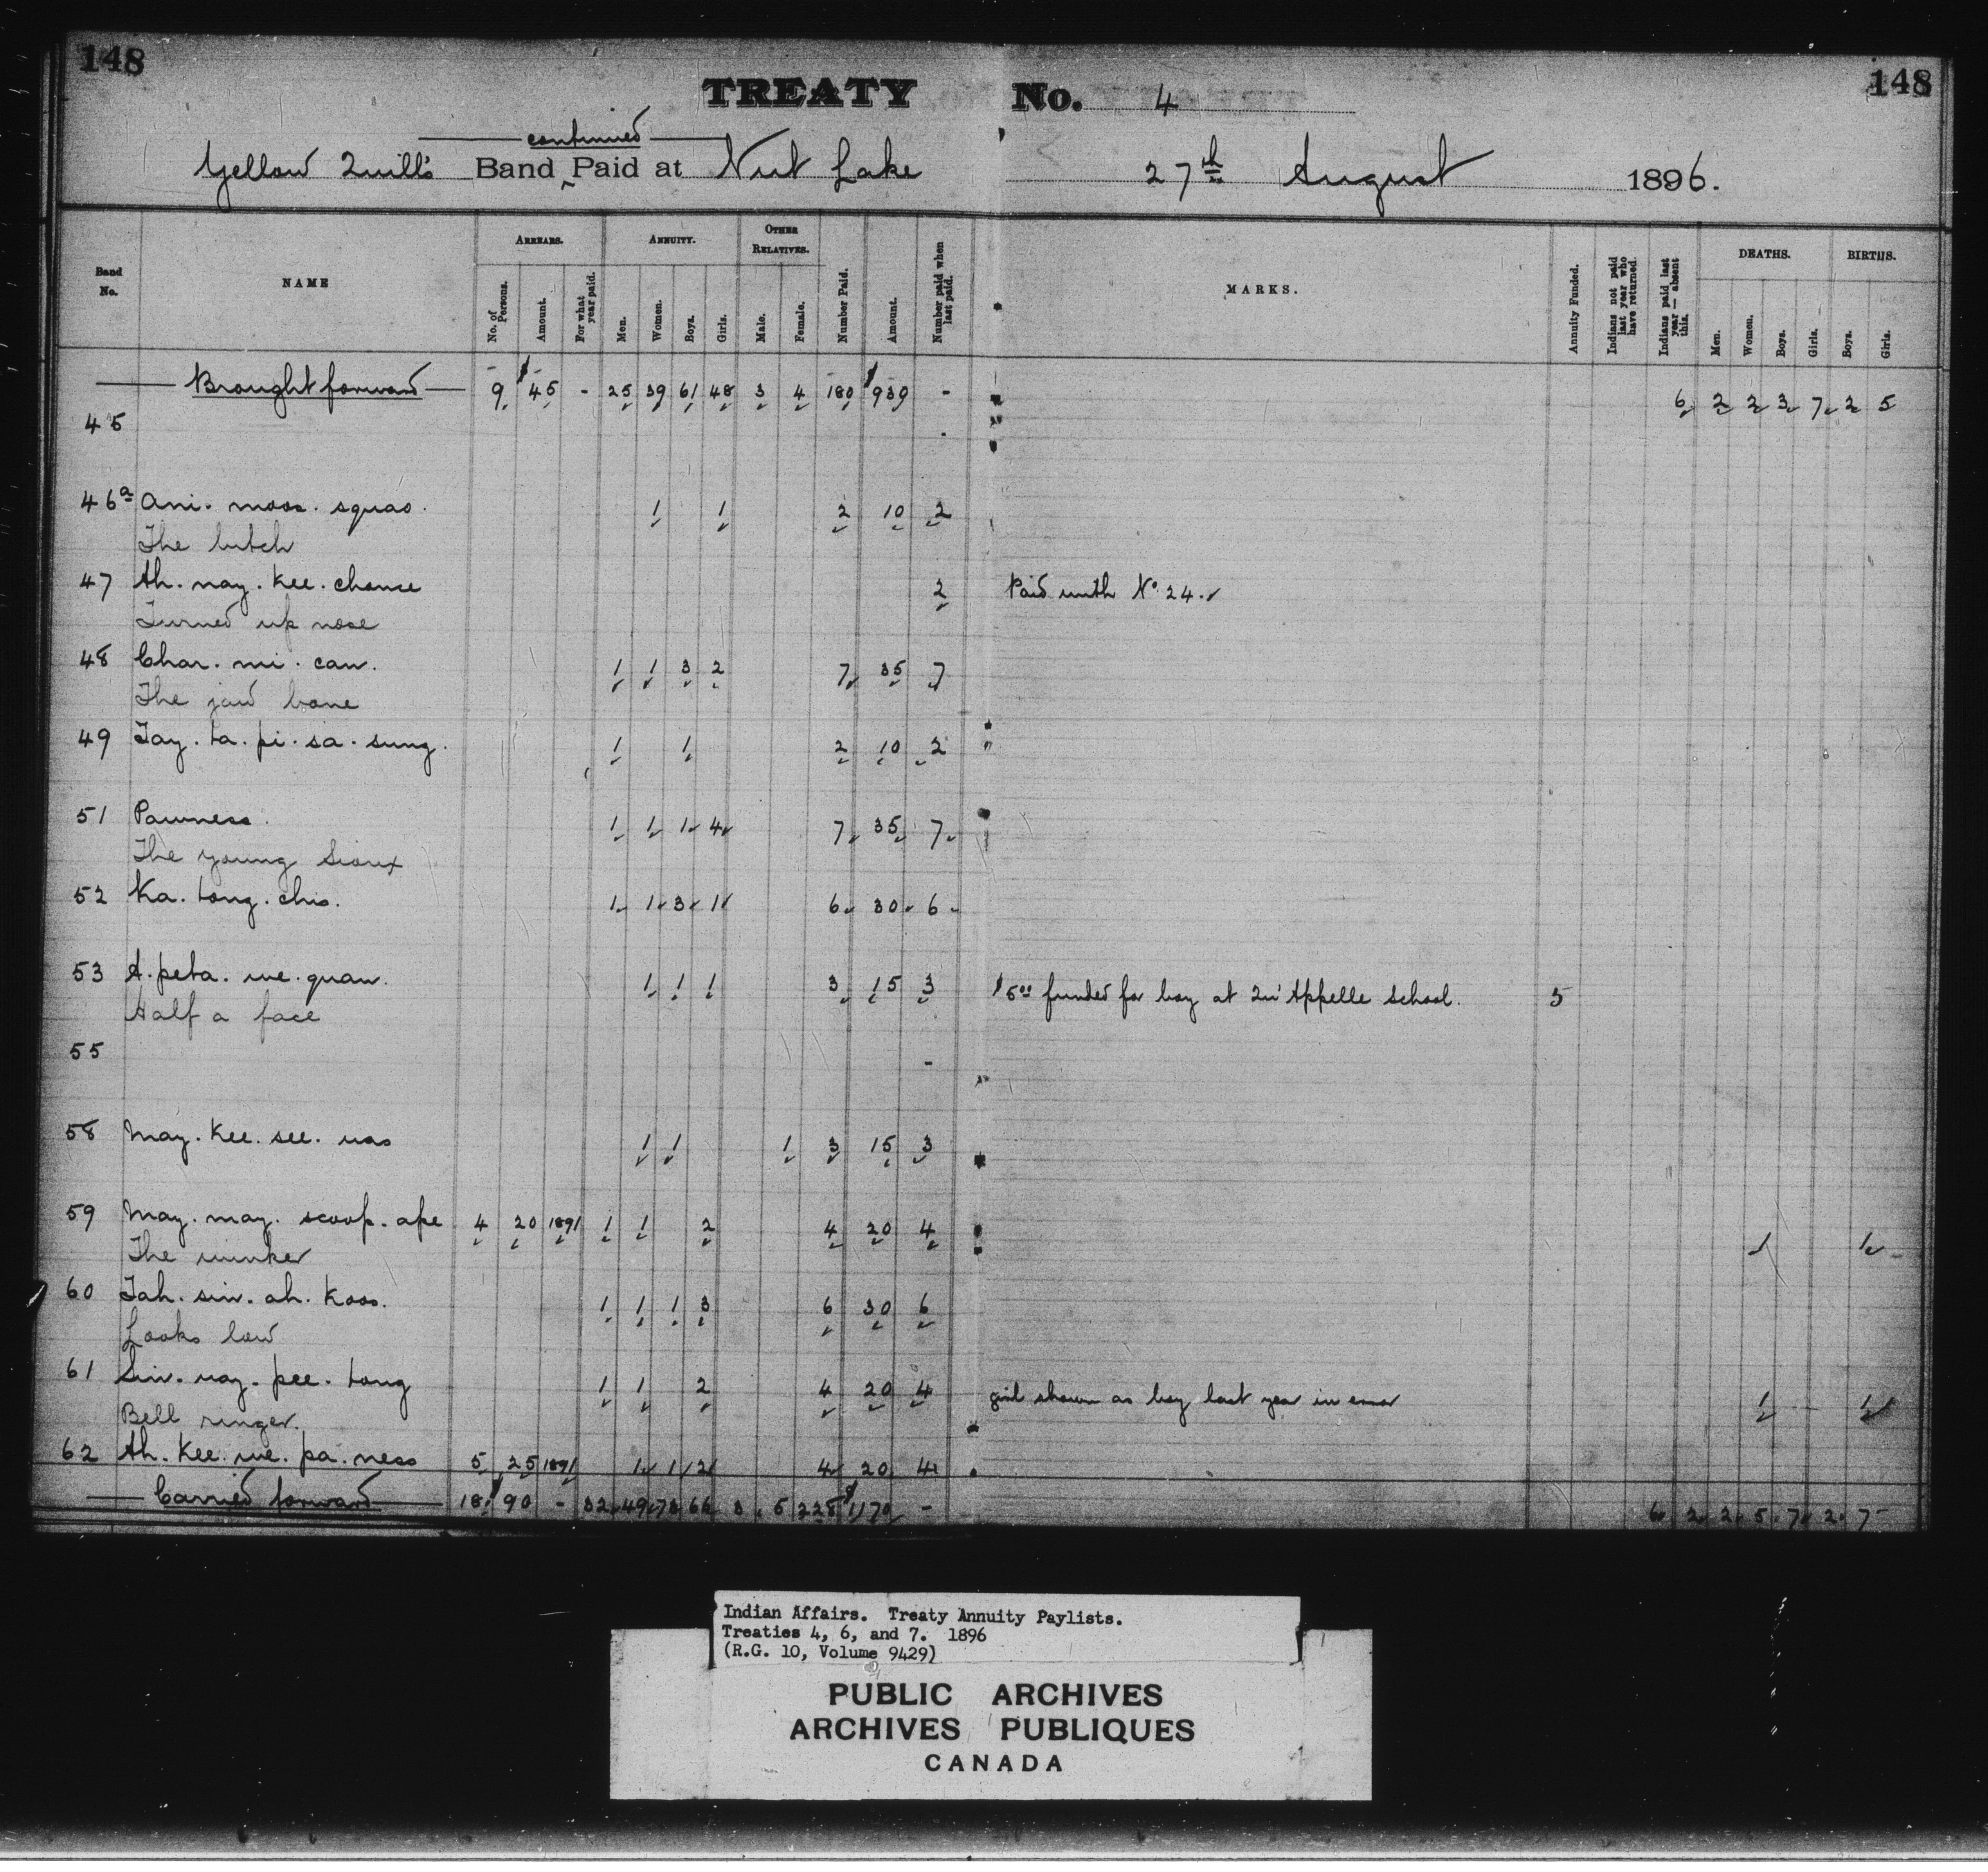 148 148
TREATY No. 4
continued
Yellow Quill's Band Paid at Nut Lake 27th August 1896.
Band No. NAME ARREARS. ANNUITY. OTHER RELATIVES. Number Paid. Amount. Number paid when last paid. MARKS. Annuity Funded. Indians not paid last year who have returned. Indians paid last year — absent this. DEATHS. BIRTHS.
No. of Persons. Amount. For what year paid. Men. Women. Boys. Girls. Male. Female. Men. Women. Boys. Girls. Boys. Girls.
Brought forward 9 $45 - 25 39 61 48 3 4 180 $939 - 6 2 2 3 7 2 5
45
46a Ani. moos. squao. 1 1 2 10 2
The bitch
47 Ah. nay. kee. chance 2 Paid with No. 24.
Turned up nose
48 Char. mi. can. 1 1 3 2 7 35 7
The jaw bone
49 Tay. ta. pi. sa. sung. 1 1 2 10 2
51 Pawness. 1 1 1 4 7 35 7
The young Sioux
52 Ka. tong. chis. 1 1 3 1 6 30 6
53 A. peta. we. quaw. 1 1 1 3 15 3 $5.00 funded for boy at Qu'Appelle School. 5
Half a face
55 -
58 May. kee. see. was 1 1 1 3 15 3
59 May. may. scoop. ape 4 20 1891 1 1 2 4 20 4 1 1
The winker
60 Tah. sin. ah. koos. 1 1 1 3 6 30 6
Looks low
61 Sin. way. pee. tong 1 1 2 4 20 4 girl shown as boy last year in error 1 1
Bell ringer.
62 Ah. kee. we. pa. ness 5 25 1891 1 1 2 4 20 4
Carried forward 18 $90 - 32 49 73 66 3 5 228 $1170 - 6 2 2 5 7 2 7
Indian Affairs. Treaty Annuity Paylists.
Treaties 4, 6, and 7. 1896
(R.G. 10, Volume 9429)
PUBLIC ARCHIVES
ARCHIVES PUBLIQUES
CANADA